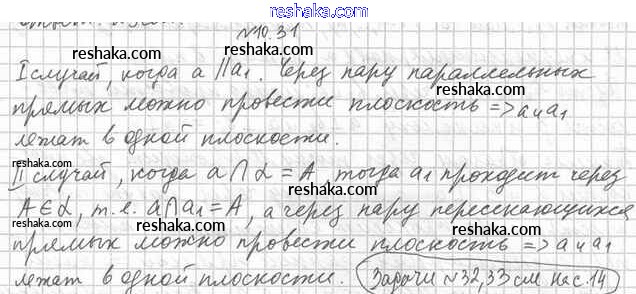 reshaka.com
№10.31
reshaka.com reshaka.com
I случай, когда a || a₁. Через пару параллельных
прямых можно провести плоскость => a и a₁
reshaka.com reshaka.com
лежат в одной плоскости.
reshaka.com reshaka.com
II случай, когда a ∩ α = A, тогда a₁ проходит через
A ∈ α, т.е. a ∩ a₁ = A, а через пару пересекающихся
reshaka.com reshaka.com
прямых можно провести плоскость => a и a₁
лежат в одной плоскости. Задачи №32,33 см. на с. 14
reshaka.com reshaka.com